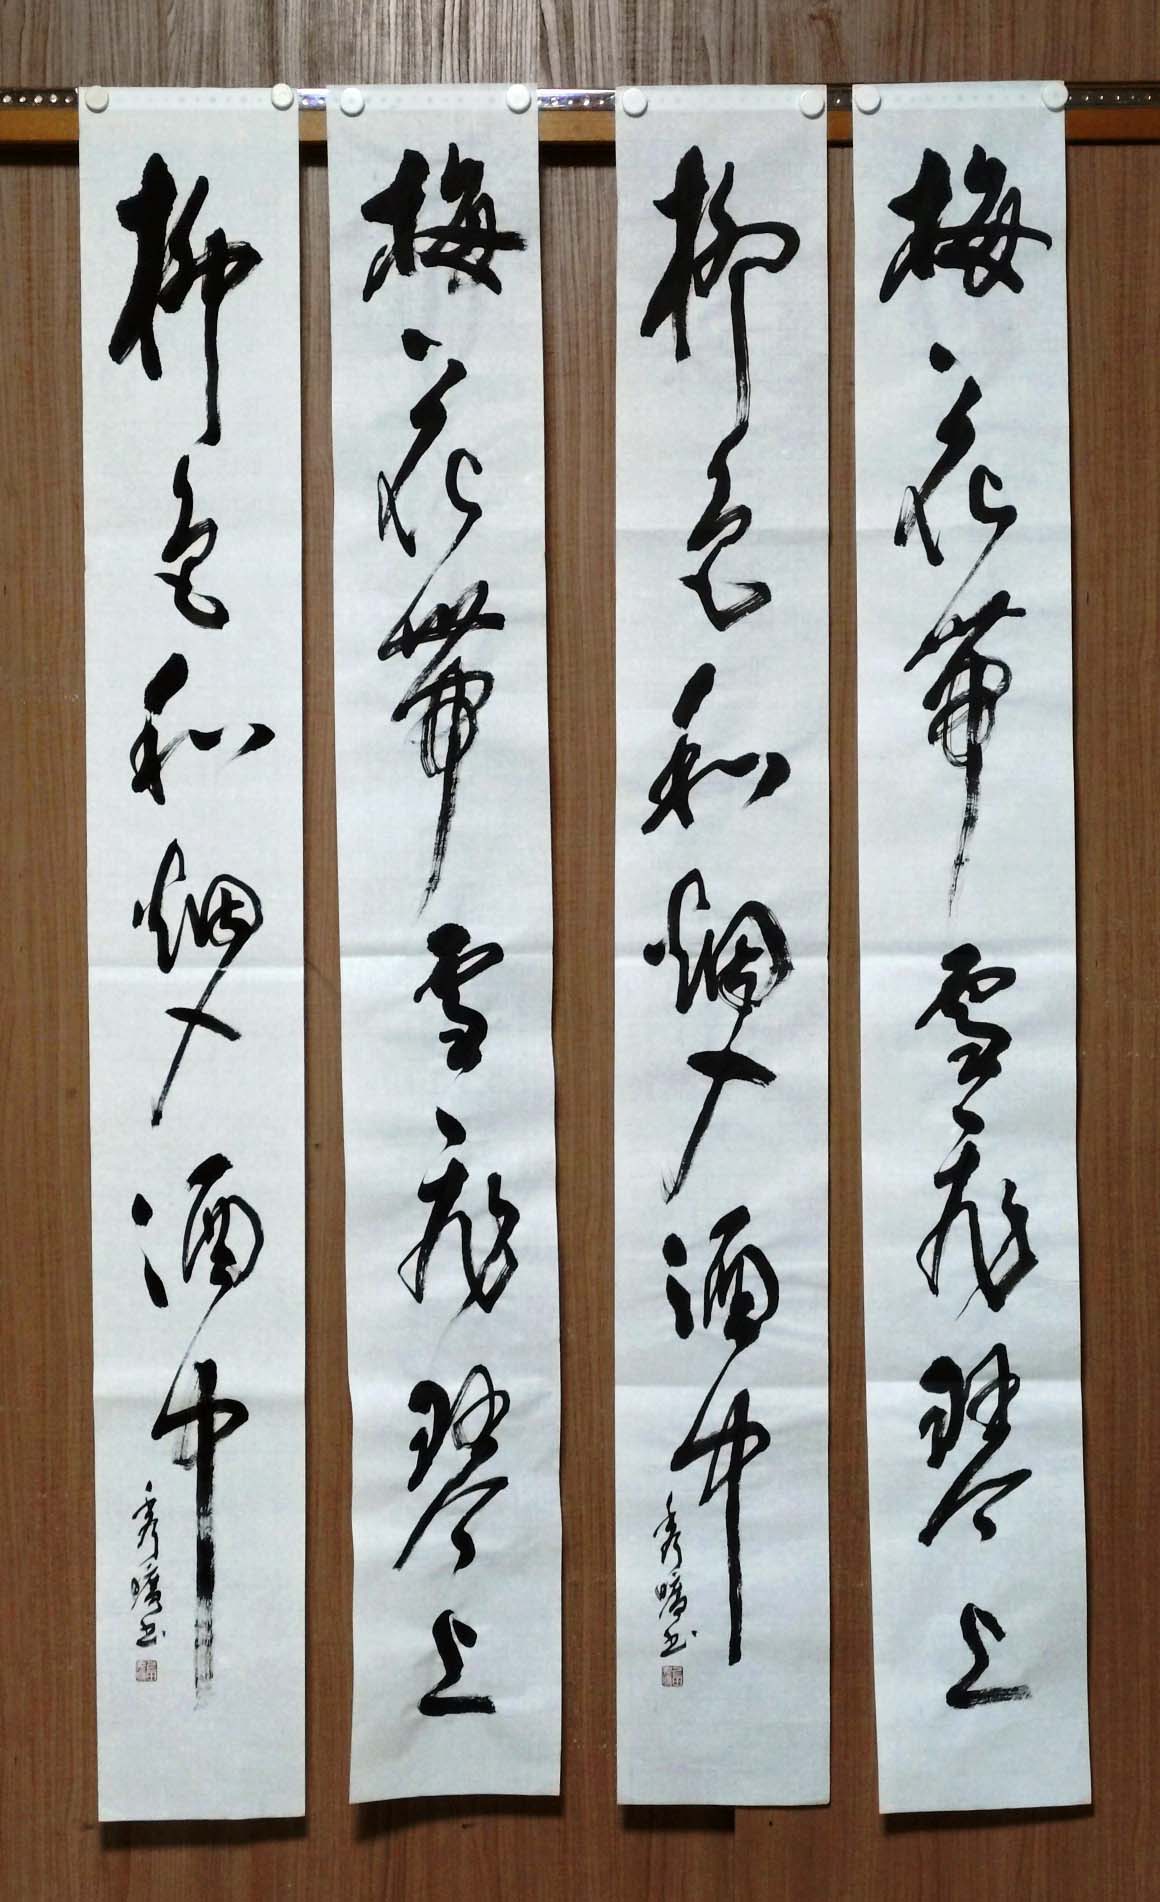 梅花帶雪飛琴上
柳色和烟入酒中
秀曠书
梅花帶雪飛琴上
柳色和烟入酒中
秀曠书